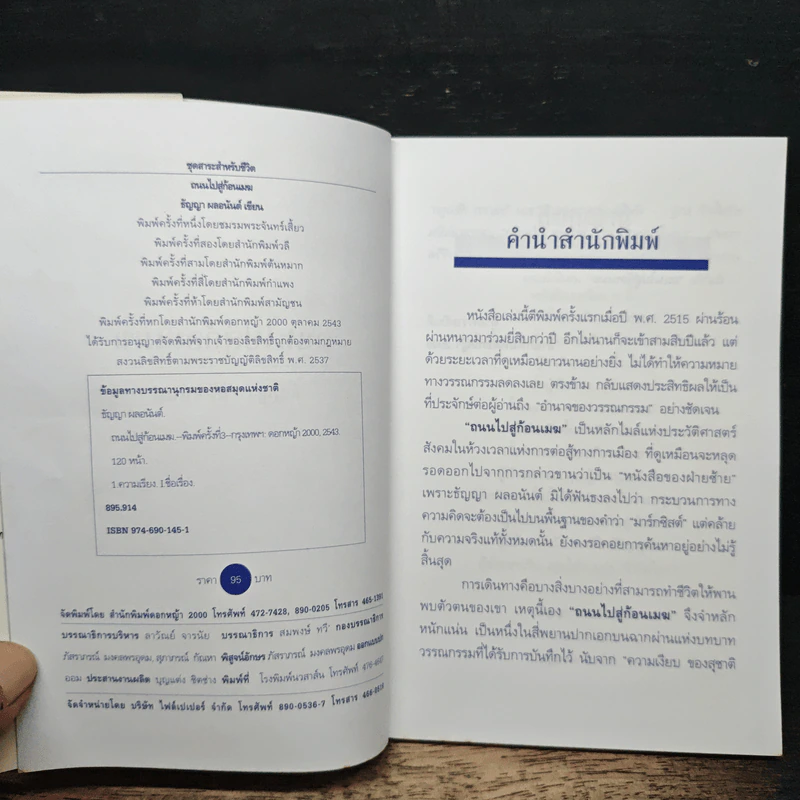 ชุดสาระสำหรับชีวิต
ถนนไปสู่ก้อนเมฆ
ธัญญา ผลอนันต์ เขียน
พิมพ์ครั้งที่หนึ่งโดยชมรมพระจันทร์เสี้ยว
พิมพ์ครั้งที่สองโดยสำนักพิมพ์วลี
พิมพ์ครั้งที่สามโดยสำนักพิมพ์ต้นหมาก
พิมพ์ครั้งที่สี่โดยสำนักพิมพ์กำแพง
พิมพ์ครั้งที่ห้าโดยสำนักพิมพ์สามัญชน
พิมพ์ครั้งที่หกโดยสำนักพิมพ์ดอกหญ้า 2000 ตุลาคม 2543
ได้รับการอนุญาตจัดพิมพ์จากเจ้าของลิขสิทธิ์ถูกต้องตามกฎหมาย
สงวนลิขสิทธิ์ตามพระราชบัญญัติลิขสิทธิ์ พ.ศ. 2537
ข้อมูลทางบรรณานุกรมของหอสมุดแห่งชาติ
ธัญญา ผลอนันต์.
ถนนไปสู่ก้อนเมฆ.--พิมพ์ครั้งที่3--กรุงเทพฯ: ดอกหญ้า 2000, 2543.
120 หน้า.
1.ความเรียง. I.ชื่อเรื่อง.
895.914
ISBN 974-690-145-1
ราคา 95 บาท
จัดพิมพ์โดย สำนักพิมพ์ดอกหญ้า 2000 โทรศัพท์ 472-7428, 890-0205 โทรสาร
บรรณาธิการบริหาร ลาวัณย์ จาวนัย บรรณาธิการ สมพงษ์ ทวี' กองบรรณาธิการ
ภัสราภรณ์ มงคลพรอุดม, สุภาภรณ์ กัณหา พิสูจน์อักษร ภัสราภรณ์ มงคลพรอุดม
ออม ประสานงานผลิต บุญแต่ง ชิดช่าง พิมพ์ที่ โรงพิมพ์นวสาส์น โทรศัพท์
จัดจำหน่ายโดย บริษัท ไฟด์เปเปอร์ จำกัด โทรศัพท์ 890-0536-7 โทรสาร
คำนำสำนักพิมพ์
หนังสือเล่มนี้ตีพิมพ์ครั้งแรกเมื่อปี พ.ศ. 2515 ผ่านร้อน
ผ่านหนาวมาร่วมยี่สิบกว่าปี อีกไม่นานก็จะเข้าสามสิบปีแล้ว แต่
ด้วยระยะเวลาที่ดูเหมือนยาวนานอย่างยิ่ง ไม่ได้ทำให้ความหมาย
ทางวรรณกรรมลดลงเลย ตรงข้าม กลับแสดงประสิทธิผลให้เป็น
ที่ประจักษ์ต่อผู้อ่านถึง "อำนาจของวรรณกรรม" อย่างชัดเจน
"ถนนไปสู่ก้อนเมฆ" เป็นหลักไมล์แห่งประวัติศาสตร์
สังคมในห้วงเวลาแห่งการต่อสู้ทางการเมือง ที่ดูเหมือนจะหลุด
รอดออกไปจากการกล่าวขานว่าเป็น "หนังสือของฝ่ายซ้าย"
เพราะธัญญา ผลอนันต์ มิได้ฟันธงลงไปว่า กระบวนการทาง
ความคิดจะต้องเป็นไปบนพื้นฐานของคำว่า "มาร์กซิสต์" แต่คล้าย
กับความจริงแท้ทั้งหมดนั้น ยังคงรอคอยการค้นหาอยู่อย่างไม่รู้
สิ้นสุด
การเดินทางคือบางสิ่งบางอย่างที่สามารถทำชีวิตให้พาน
พบตัวตนของเขา เหตุนี้เอง "ถนนไปสู่ก้อนเมฆ" จึงจำหลัก
หนักแน่น เป็นหนึ่งในสี่พยานปากเอกบนฉากผ่านแห่งบทบาท
วรรณกรรมที่ได้รับการบันทึกไว้ นับจาก "ความเงียบ ของสุชาติ